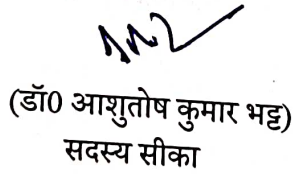 (डॉ0 आशुतोष कुमार भट्ट)
सदस्य सीका